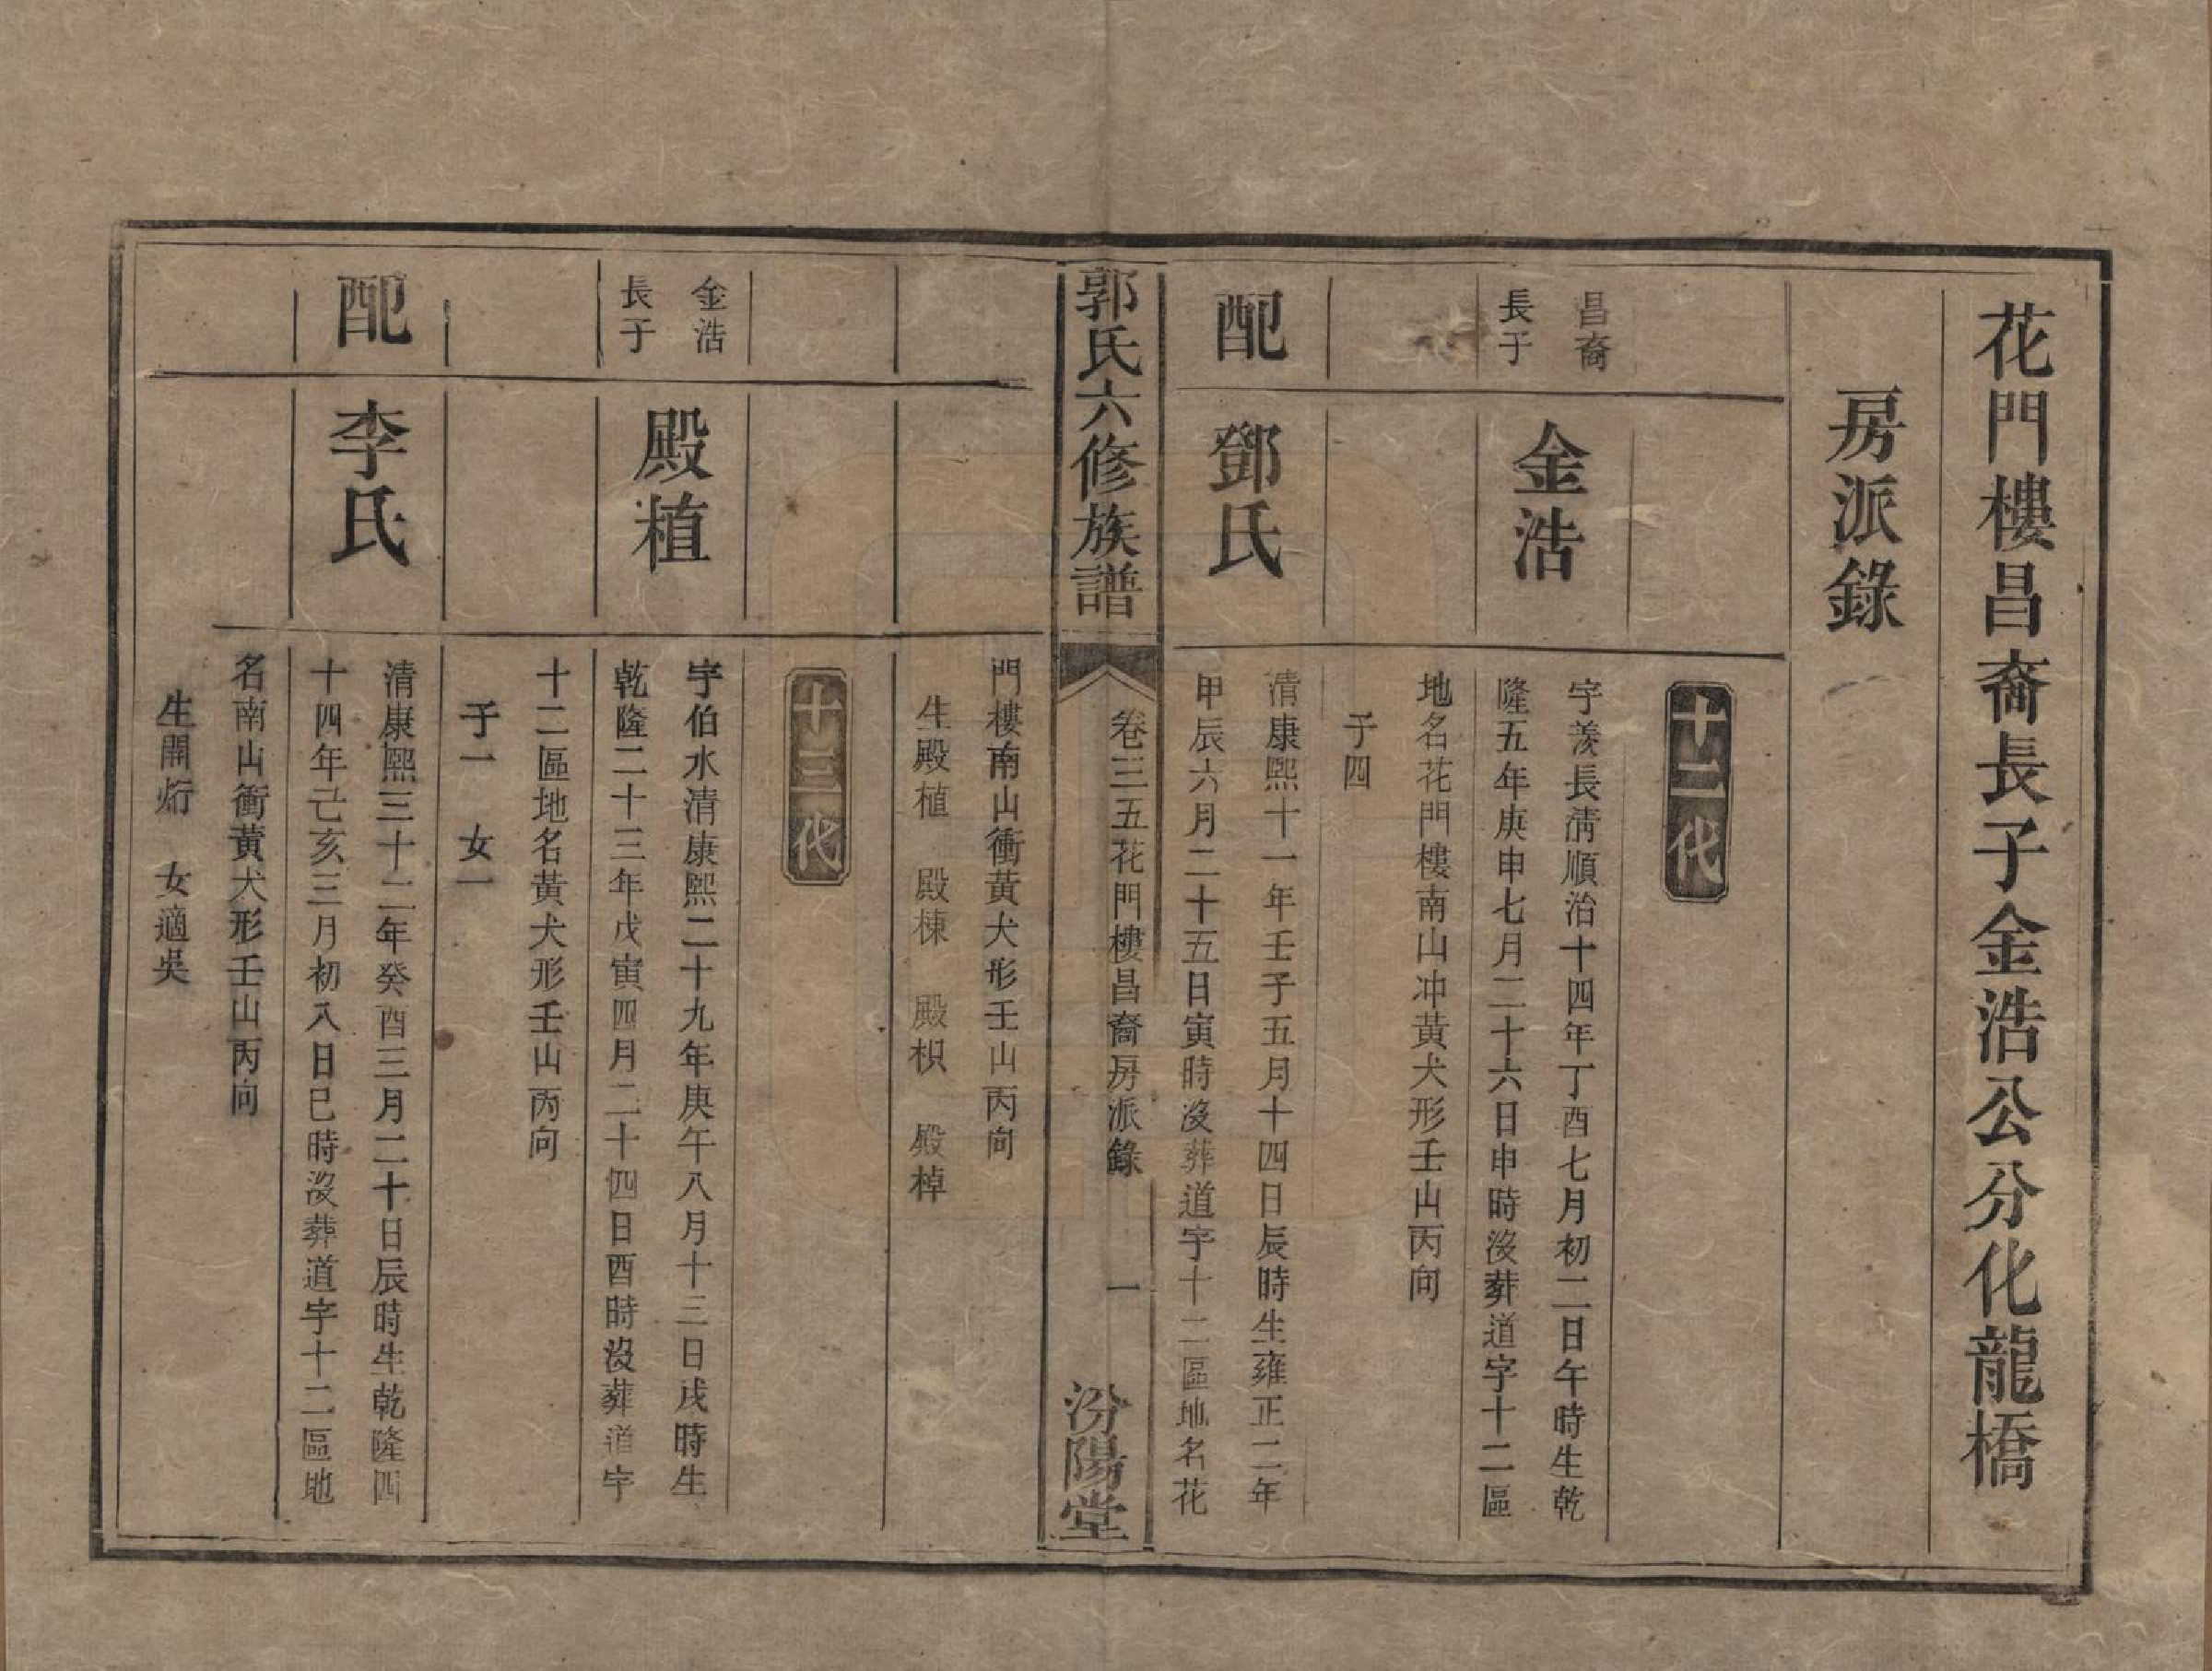 花門樓昌裔長子金浩公分化龍橋
房派錄
十二代
昌裔
長子
金浩
字羨長清順治十四年丁酉七月初二日午時生乾
隆五年庚申七月二十六日申時沒葬道字十二區
地名花門樓南山冲黃犬形壬山丙向
子四
配
鄧氏
清康熙十一年壬子五月十四日辰時生雍正二年
甲辰六月二十五日寅時沒葬道字十二區地名花
郭氏六修族譜
卷三五花門樓昌裔房派錄
一
汾陽堂
門樓南山衝黃犬形壬山丙向
生殿植 殿棟 殿枳 殿棹
十三代
金浩
長子
殿植
字伯水清康熙二十九年庚午八月十三日戌時生
乾隆二十三年戊寅四月二十四日酉時沒葬道字
十二區地名黃犬形壬山丙向
子一 女一
配
李氏
清康熙三十二年癸酉三月二十日辰時生乾隆四
十四年己亥三月初入日巳時沒葬道字十二區地
名南山衝黃犬形壬山丙向
生開烆 女適吳